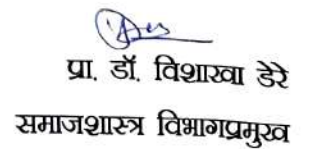 प्रा. डॉ. विशाखा डेरे
समाजशास्त्र विभागप्रमुख